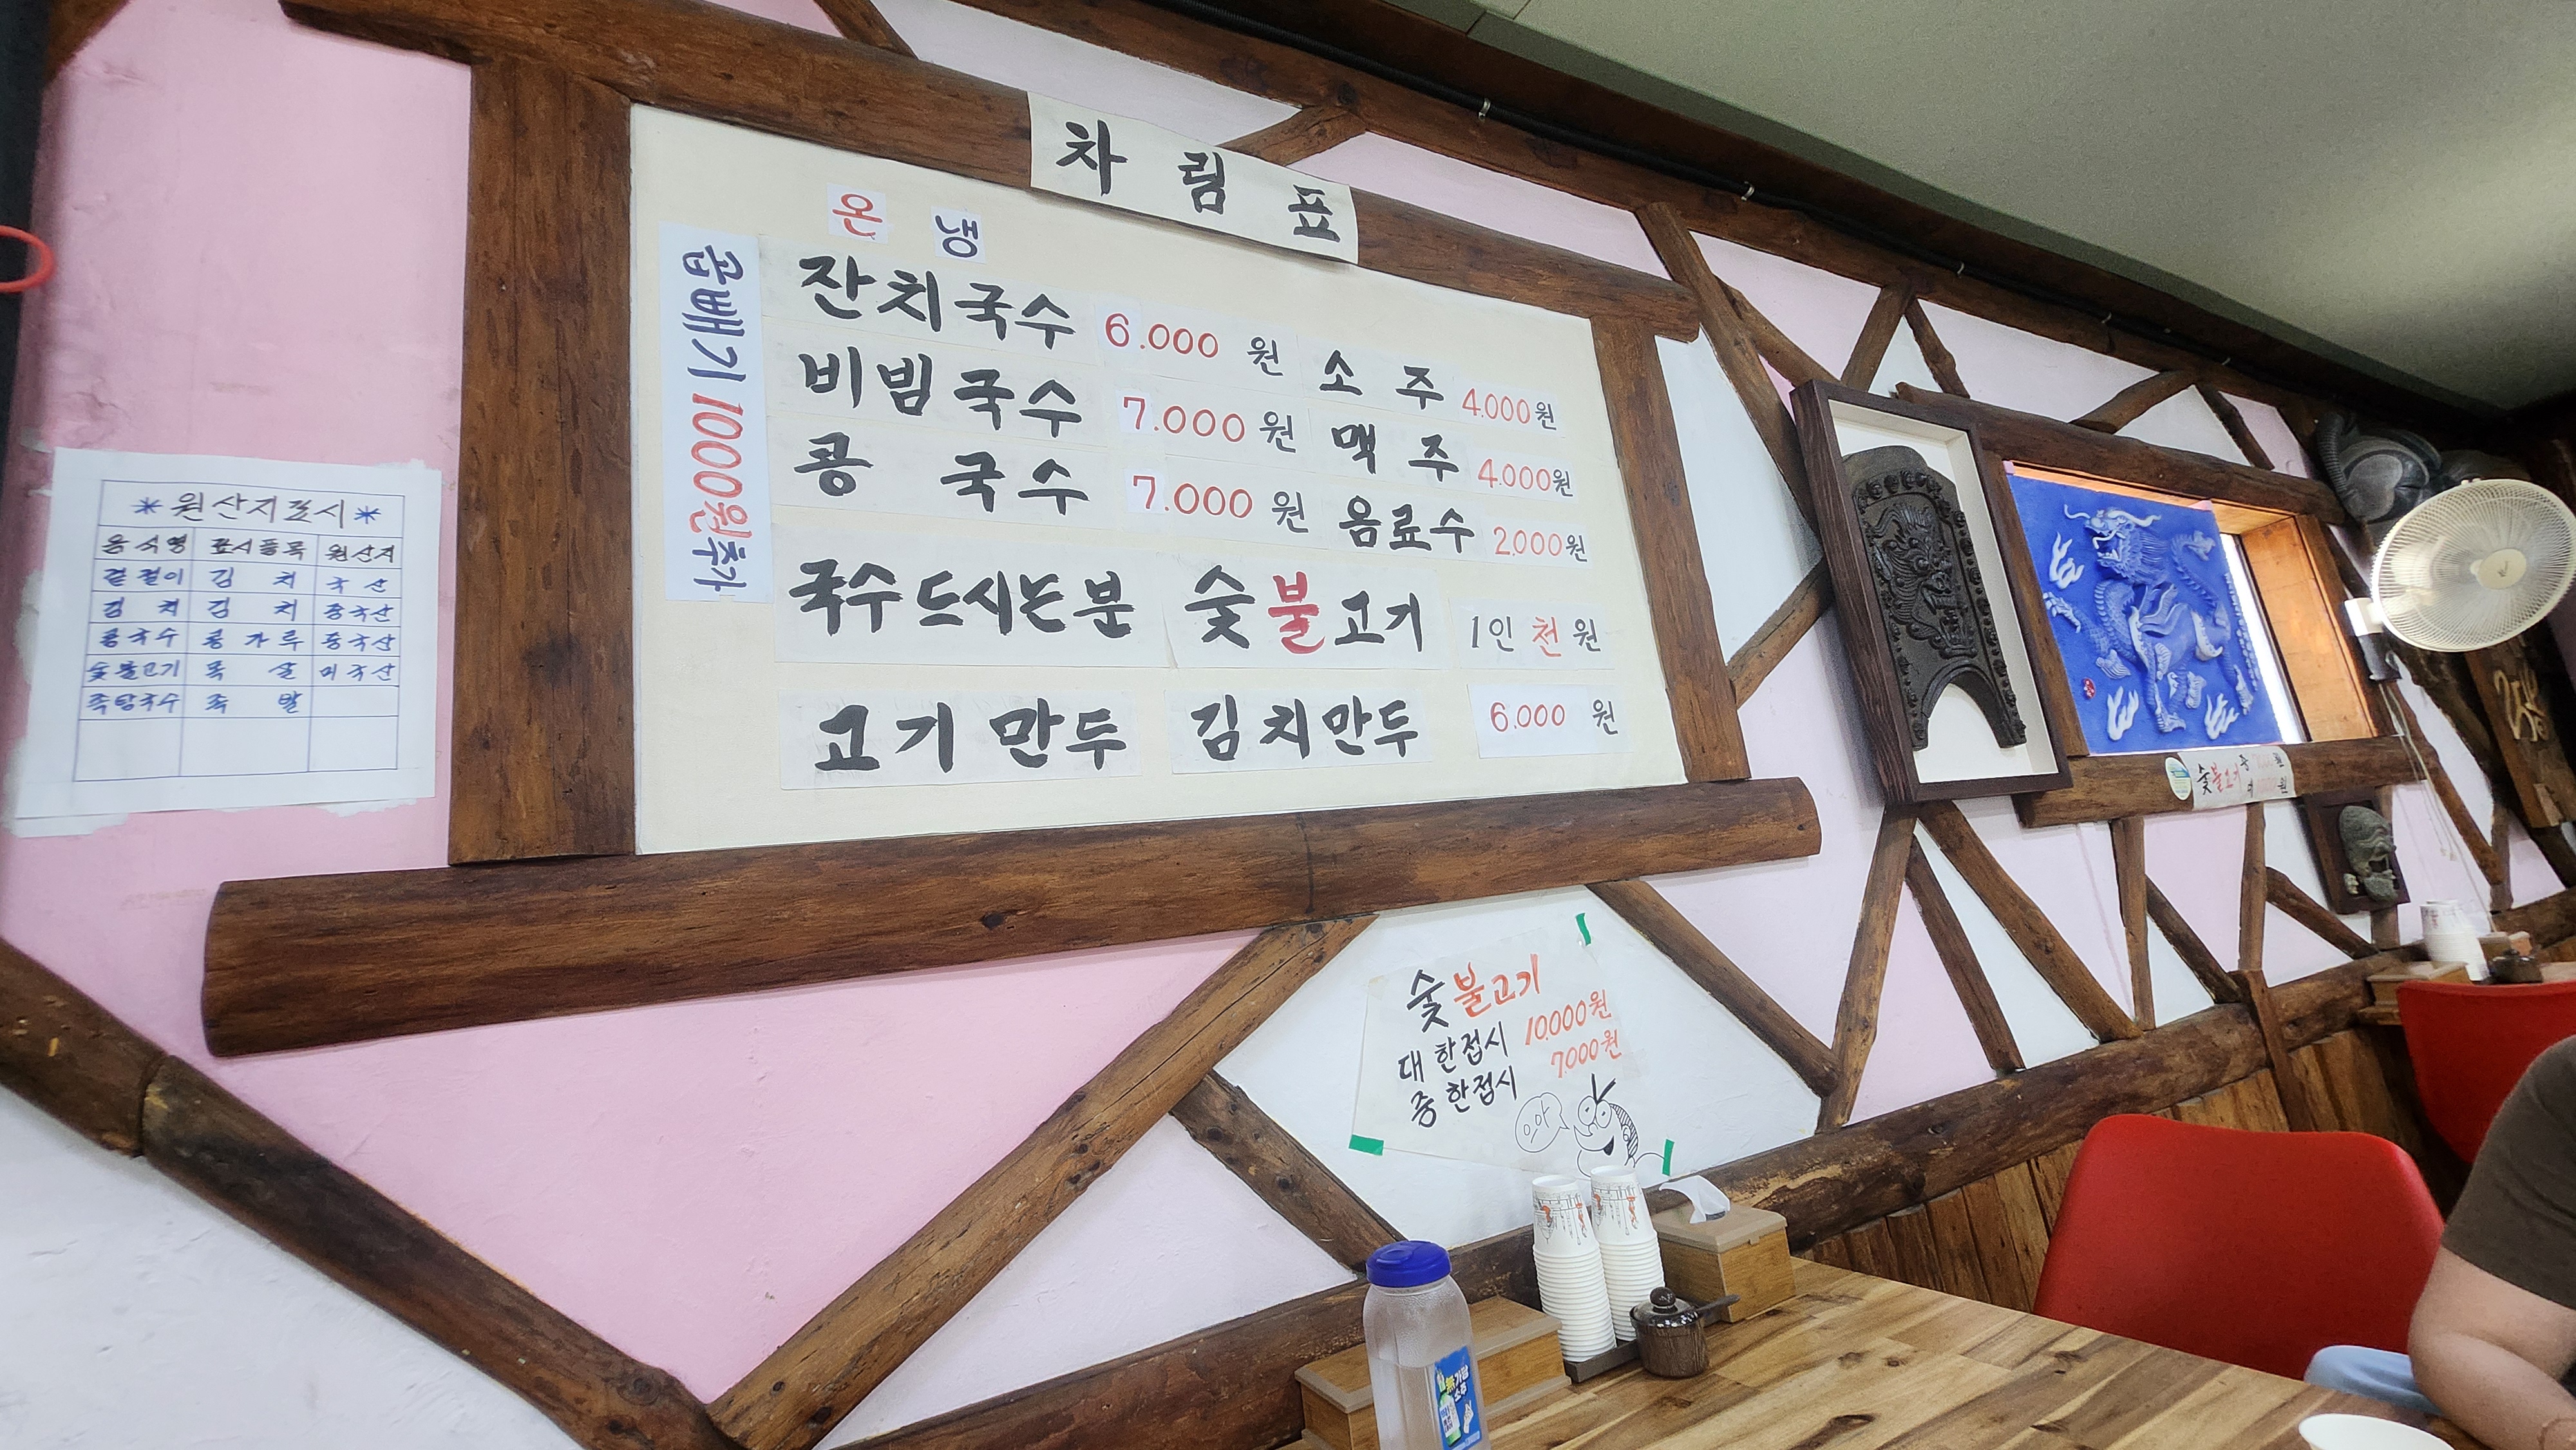 차림표
온 냉
곱배기 1000원추가
잔치국수 6.000 원
비빔국수 7.000 원
콩 국수 7.000 원
소 주 4.000원
맥 주 4.000원
음료수 2.000원
국수드시는분 숯불고기 1인 천 원
고기만두 김치만두 6.000 원
*원산지표시*
음식명 표시품목 원산지
겉절이 김 치 국 산
김 치 김 치 중국산
콩국수 콩 가 루 중국산
숯불고기 목 살 미국산
족탕국수 족 발
숯불고기
대 한접시 10.000원
중 한접시 7000원
숯불고기